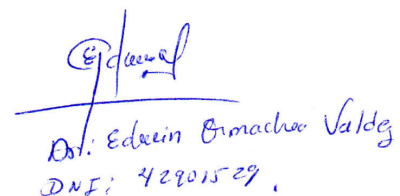 Edwin Ormachea Valdez
DNI: 42901529